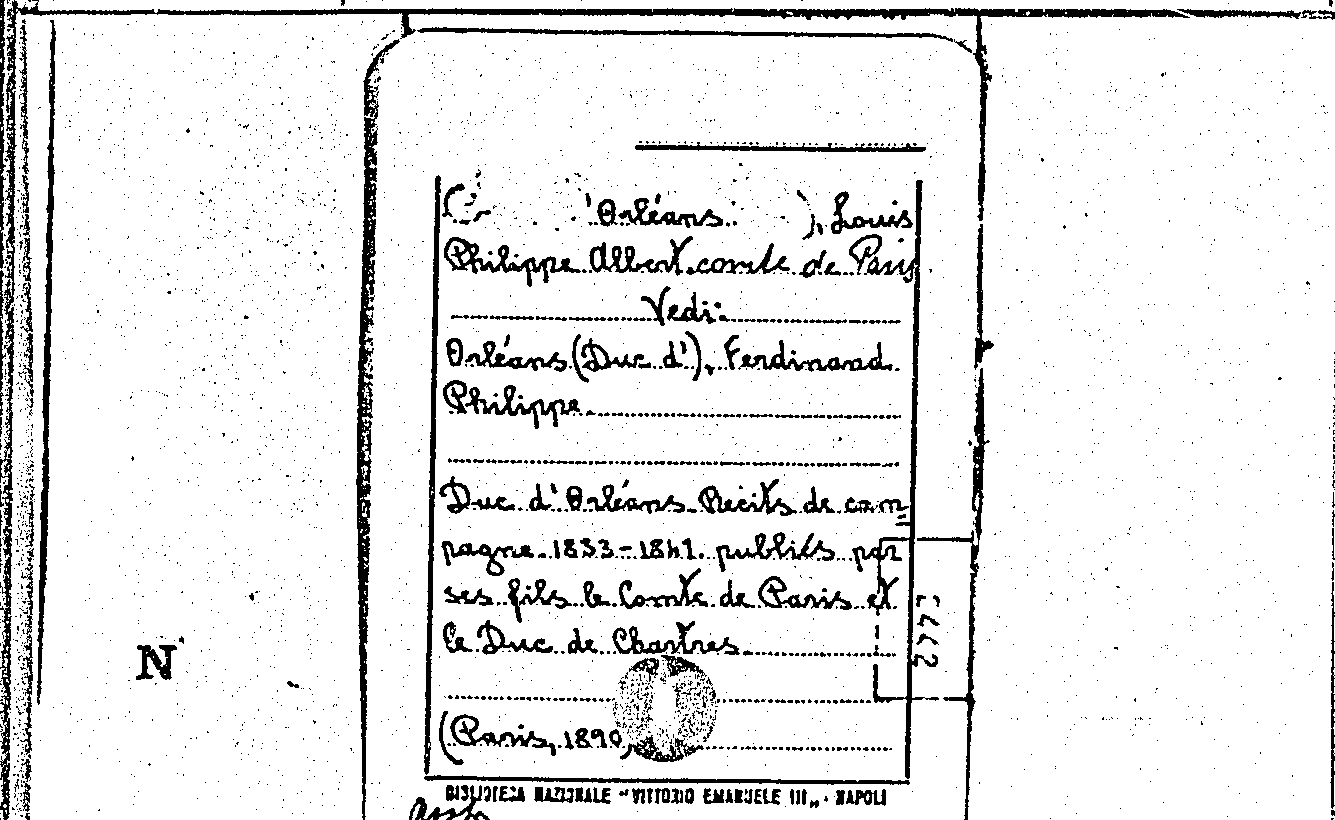 'Orléans ), Louis
Philippe Albert comte de Paris
Vedi:
Orléans (Duc d'), Ferdinand
Philippe
Duc d'Orléans. Récits de cam
pagne. 1833-1841. publiés par
ses fils le Comte de Paris et
le Duc de Chartres.
(Paris, 1890
N
BIBLIOTECA NAZIONALE "VITTORIO EMANUELE III„ - NAPOLI